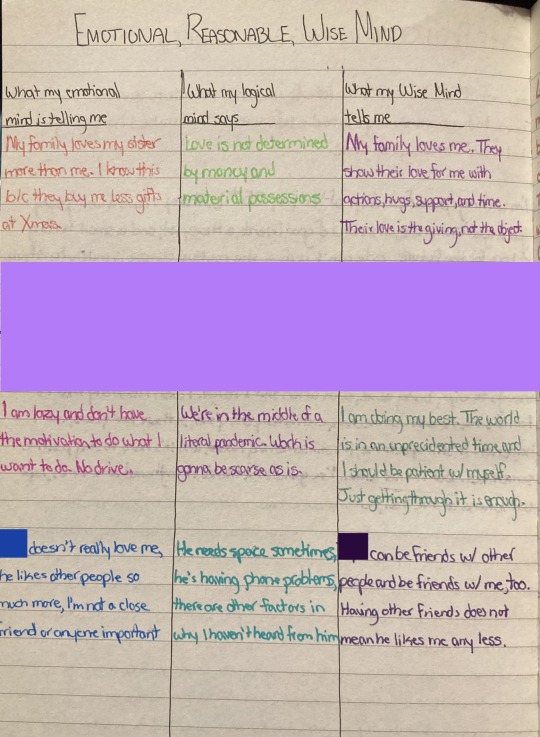 EMOTIONAL, REASONABLE, WISE MIND
What my emotional
mind is telling me
My family loves my sister
more than me. I know this
b/c they buy me less gifts
at Xmas.
What my logical
mind says
Love is not determined
by money and
material possessions
What my Wise Mind
tells me
My family loves me. They
show their love for me with
actions, hugs, support, and time.
Their love is the giving, not the object.
I am lazy and don't have
the motivation to do what I
want to do. No drive.
We're in the middle of a
literal pandemic. Work is
gonna be scarse as is.
I am doing my best. The world
is in an unprecidented time and
I should be patient w/ myself.
Just getting through it is enough.
doesn't really love me,
he likes other people so
much more, I'm not a close
friend or anyone important
He needs space sometimes,
he's having phone problems,
there are other factors in
why I haven't heard from him
can be friends w/ other
people and be friends w/ me, too.
Having other friends does not
mean he likes me any less.